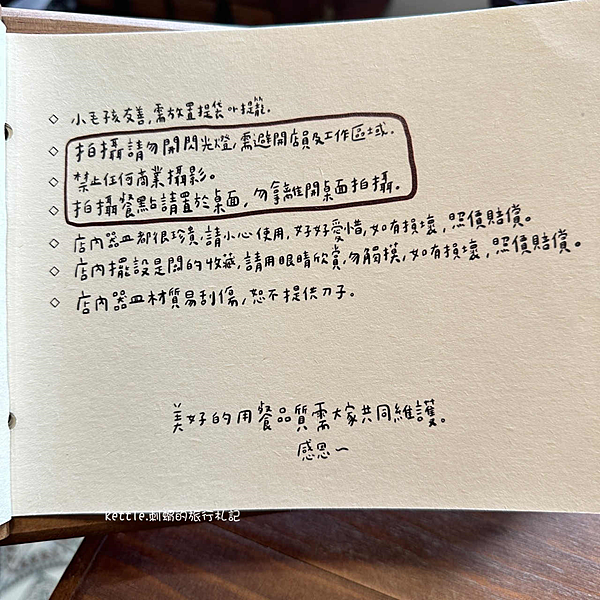 ◇ 小毛孩友善,需放置提袋or提籠.
◇ 拍攝請勿開閃光燈,需避開店員及工作區域.
◇ 禁止任何商業攝影。
◇ 拍攝餐點請置於桌面,勿拿離開桌面拍攝。
◇ 店內器皿都很珍貴,請小心使用,好好愛惜,如有損壞,照價賠償。
◇ 店內擺設是闆的收藏,請用眼睛欣賞,勿觸摸,如有損壞,照價賠償。
◇ 店內器皿材質易刮傷,恕不提供刀子。
美好的用餐品質需大家共同維護。
感恩~
kettle.刺蝟的旅行札記